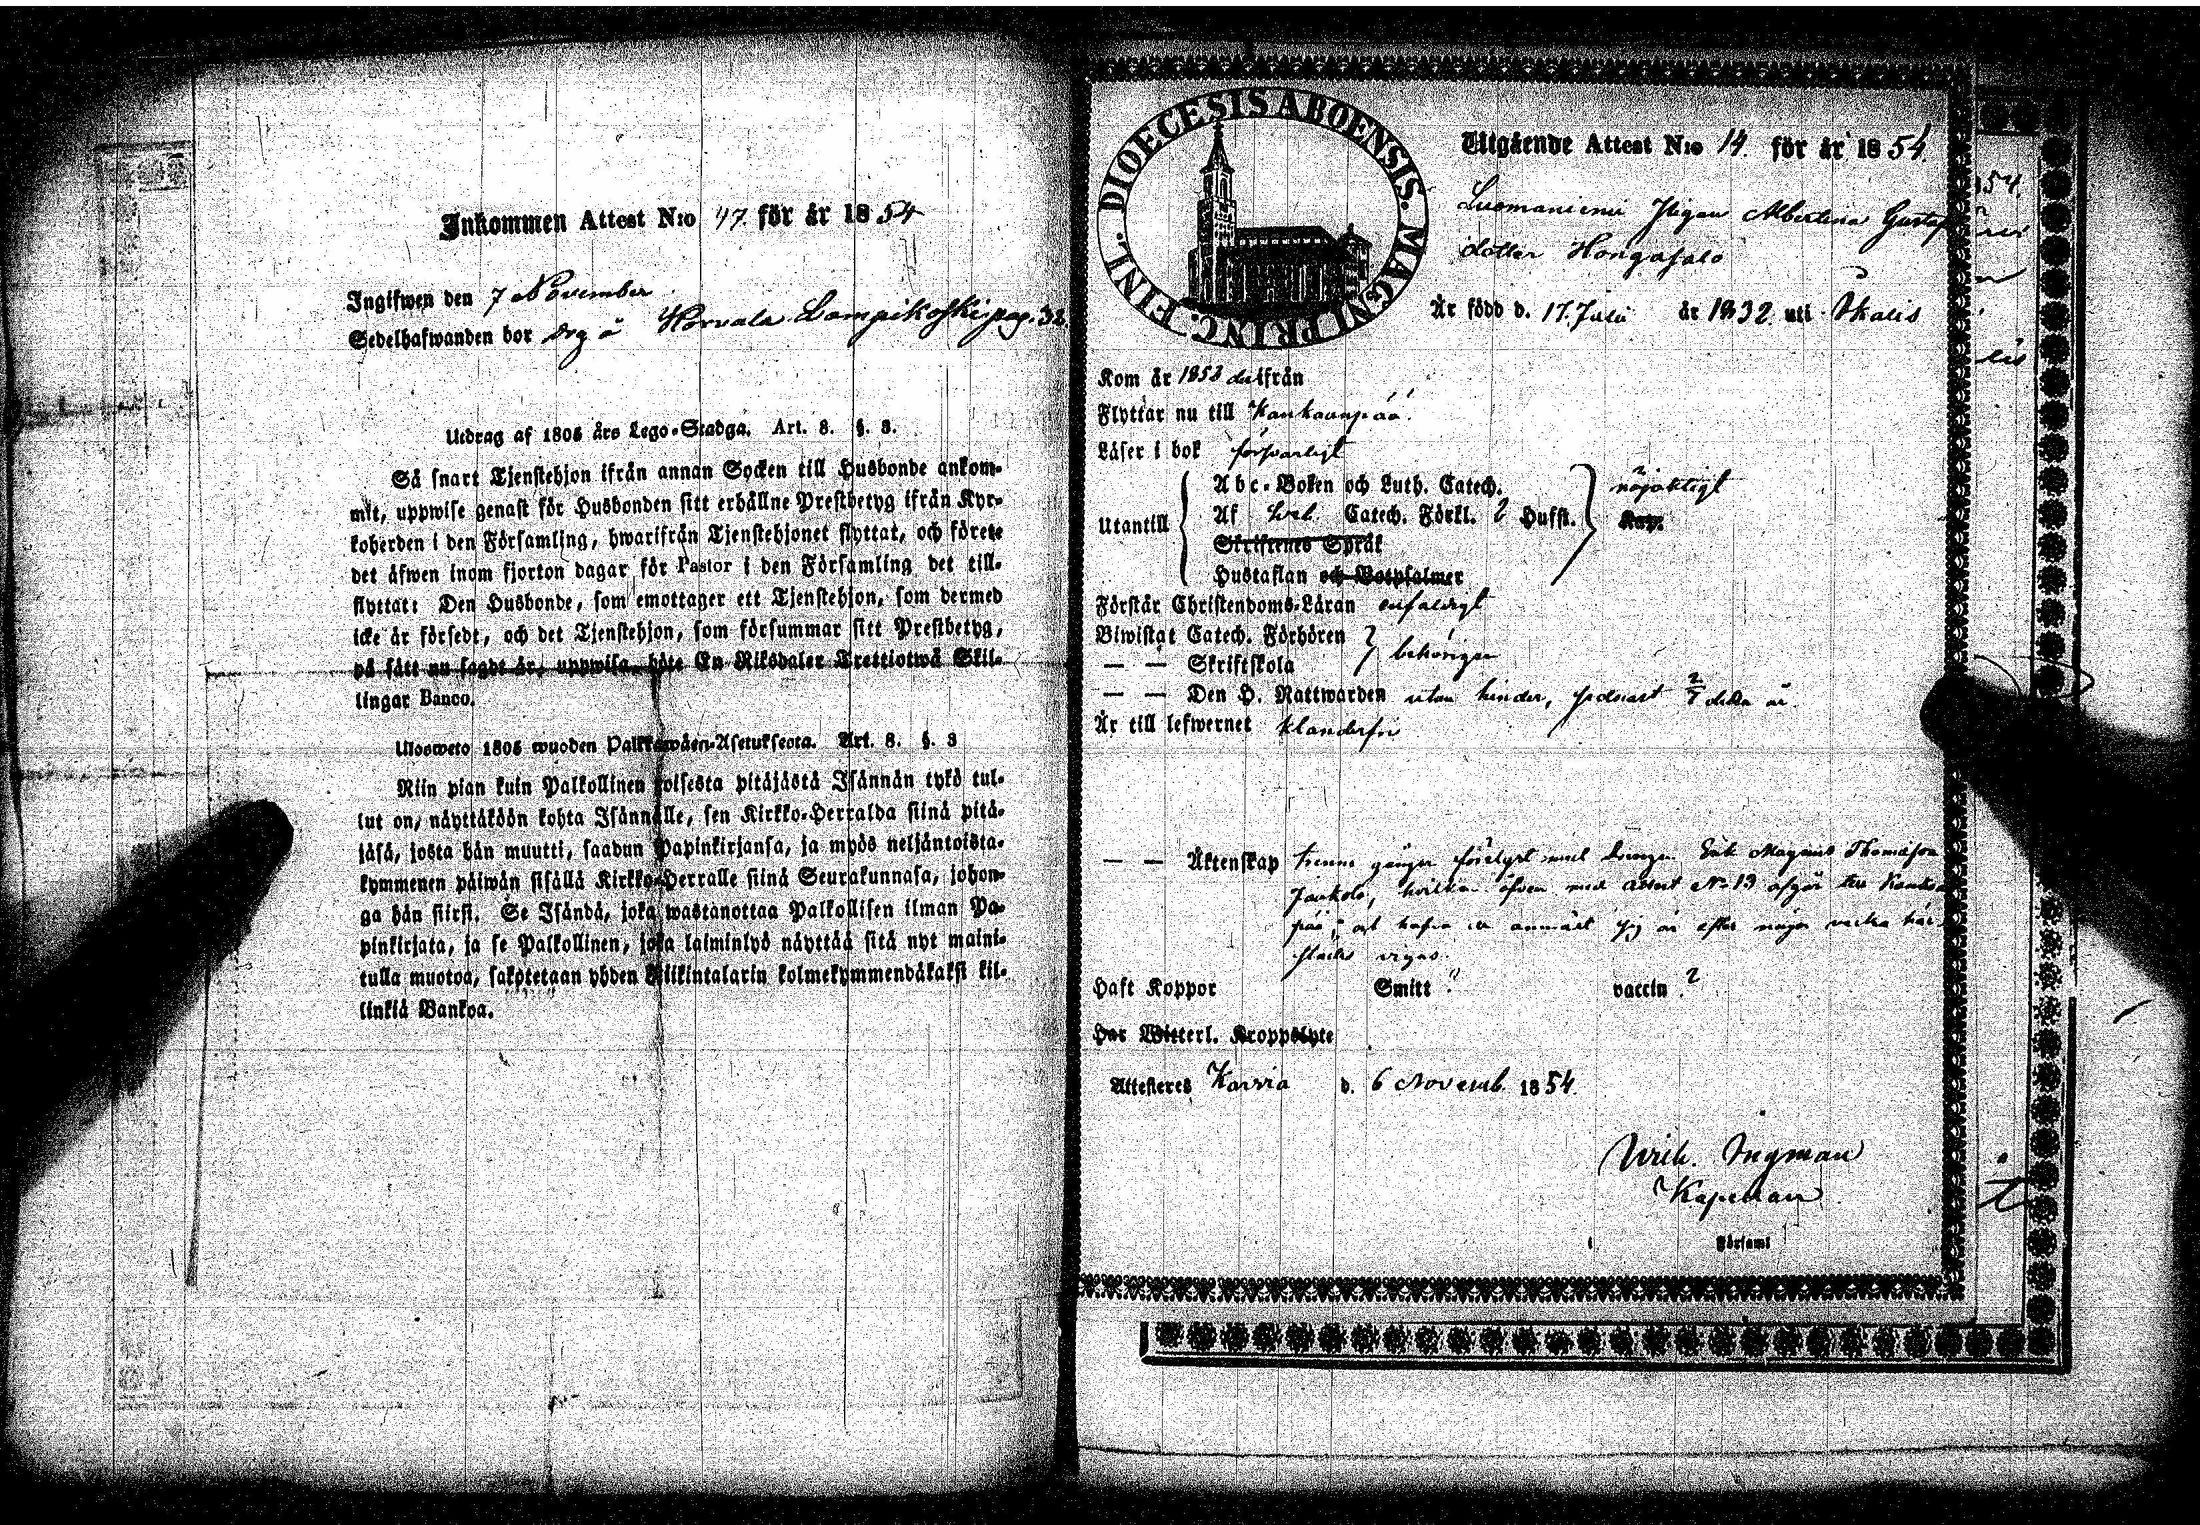 Inkommen Attest N:o 47. för år 1854
Ingifwen den 7 November
Sedelhafwanden bor drg å Horvala Lampikoski pag. 38.
Utdrag af 1805 års Lego-Stadga. Art. 8. §. 3.
Så snart Tjenstehjon ifrån annan Socken till Husbonde ankom-
mit, uppwise genast för Husbonden sitt erhållne Prestbetyg ifrån Kyr-
koherden i den Församling, hwarifrån Tjenstehjonet flyttat, och förete
det äfwen inom fjorton dagar för Pastor i den Församling det till-
flyttat: Den Husbonde, som emottager ett Tjenstehjon, som dermed
icke är försedt, och det Tjenstehjon, som försummar sitt Prestbetyg,
på sätt nu sagdt är, uppwisa, böte En Riksdaler Trettiotwå Skil-
lingar Banco.
Ulosweto 1805 wuoden Palkkawäen-Asetuksesta. Art. 8. §. 3
Niin pian kuin Palkollinen toisesta pitäjästä Isännän tykö tul-
lut on, näyttäköön kohta Isännälle, sen Kirkko-Herralda siinä pitä-
jäsä, josta hän muutti, saadun Papinkirjansa, ja myös neljäntoista-
kymmenen päiwän sisällä Kirkko-Herralle siinä Seurakunnasa, johon-
ga hän siirsi. Se Isändä, joka wastanottaa Palkollisen ilman Pa-
pinkirjata, ja se Palkollinen, joka laiminlyö näyttää sitä nyt maini-
tulla muotoa, sakotetaan yhden Riikintalarin kolmekymmendäkaksi kil-
linkiä Bankoa.
DIOECESIS ABOENSIS. MAGNI PRINC. FINL.
Utgående Attest N:o 14. för år 1854.
Luomaniemi Pigan Albertina Gustafs
dotter Hongasalo
Är född d. 17. Julii år 1832 uti Ikalis
Kom år 1853 ditifrån
Flyttar nu till Kankaanpää.
Läser i bok försvarligt
Utantill
Abc-Boken och Luth. Catech. nöjaktigt
Af Catech. Förkl. 2 Hufst. Kap.
Skriftenes Språk
Hustaflan och Botpsalmer
Förstår Christendoms-Läran enfaldigt
Biwistat Catech. Förhören behörigen
— — Skriftskola
— — Den H. Nattwarden utan hinder, sednast 2/7 detta år.
Är till lefwernet klanderfri
— — Äktenskap trenne gånger förelyst med Drängen Erik Magnus Thomasson
Jaakola, hvilken äfven med attest N:o 13 afgår till Kankaan
pää, och hafva de anmält sig att efter någon vecka här-
städes vigas.
Haft Koppor Smitt ? vaccin ?
Har Witterl. Kroppslyte
Attesteras Karvia d. 6 Novemb. 1854.
Wilh. Ingman
Kapellan
i Forsaml